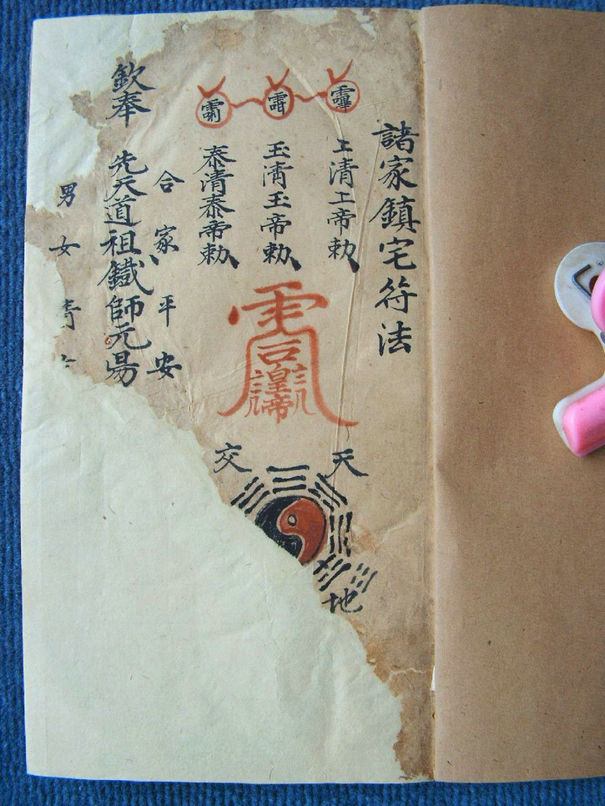 諸家鎮宅符法
上清上帝勅
玉清玉帝勅
泰清泰帝勅
天
交
地
合家平安
欽奉 先天道祖鐵師元易
男女